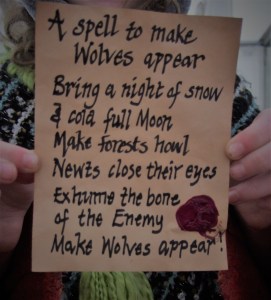 A spell to make
Wolves appear
Bring a night of snow
& cold full Moon
Make forests howl
Newts close their eyes
Exhume the bone
of the Enemy
Make Wolves appear!